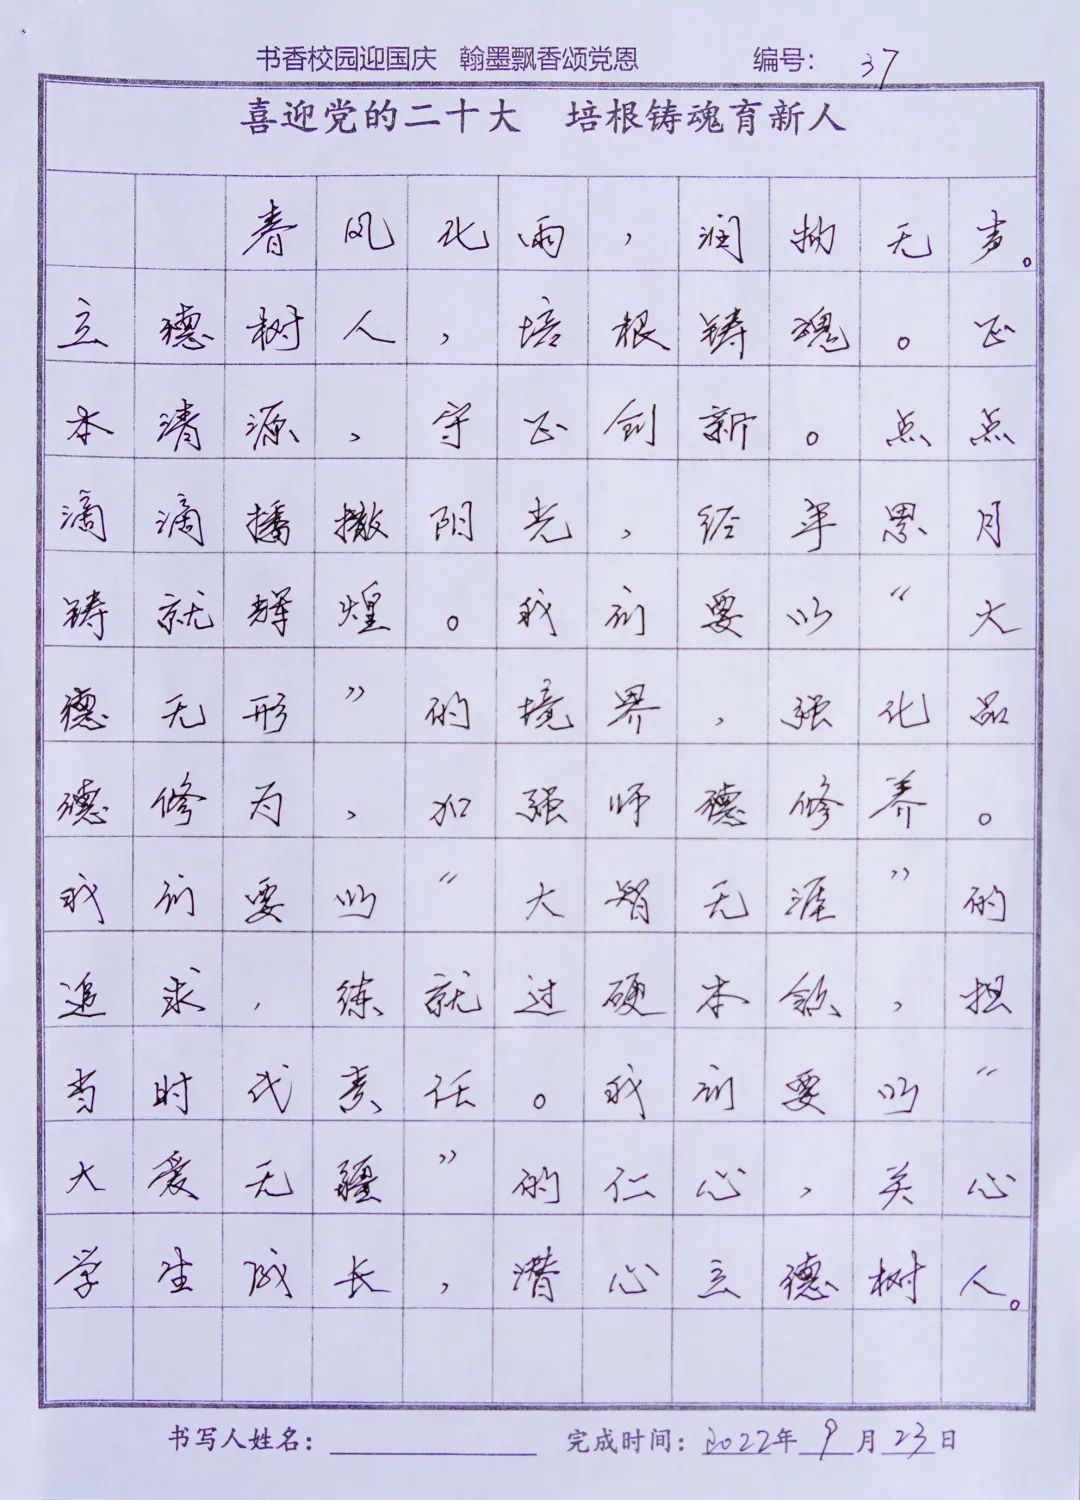 书香校园迎国庆 翰墨飘香颂党恩 编号: 37
喜迎党的二十大 培根铸魂育新人
春风化雨,润物无声。
立德树人,培根铸魂。正
本清源,守正创新。点点
滴滴播撒阳光,经年累月
铸就辉煌。我们要以“大
德无形”的境界,强化品
德修为,加强师德修养。
我们要以“大智无涯”的
追求,练就过硬本领,担
当时代责任。我们要以“
大爱无疆”的仁心,关心
学生成长,潜心立德树人。
书写人姓名: 完成时间: 2022年 9 月 23 日